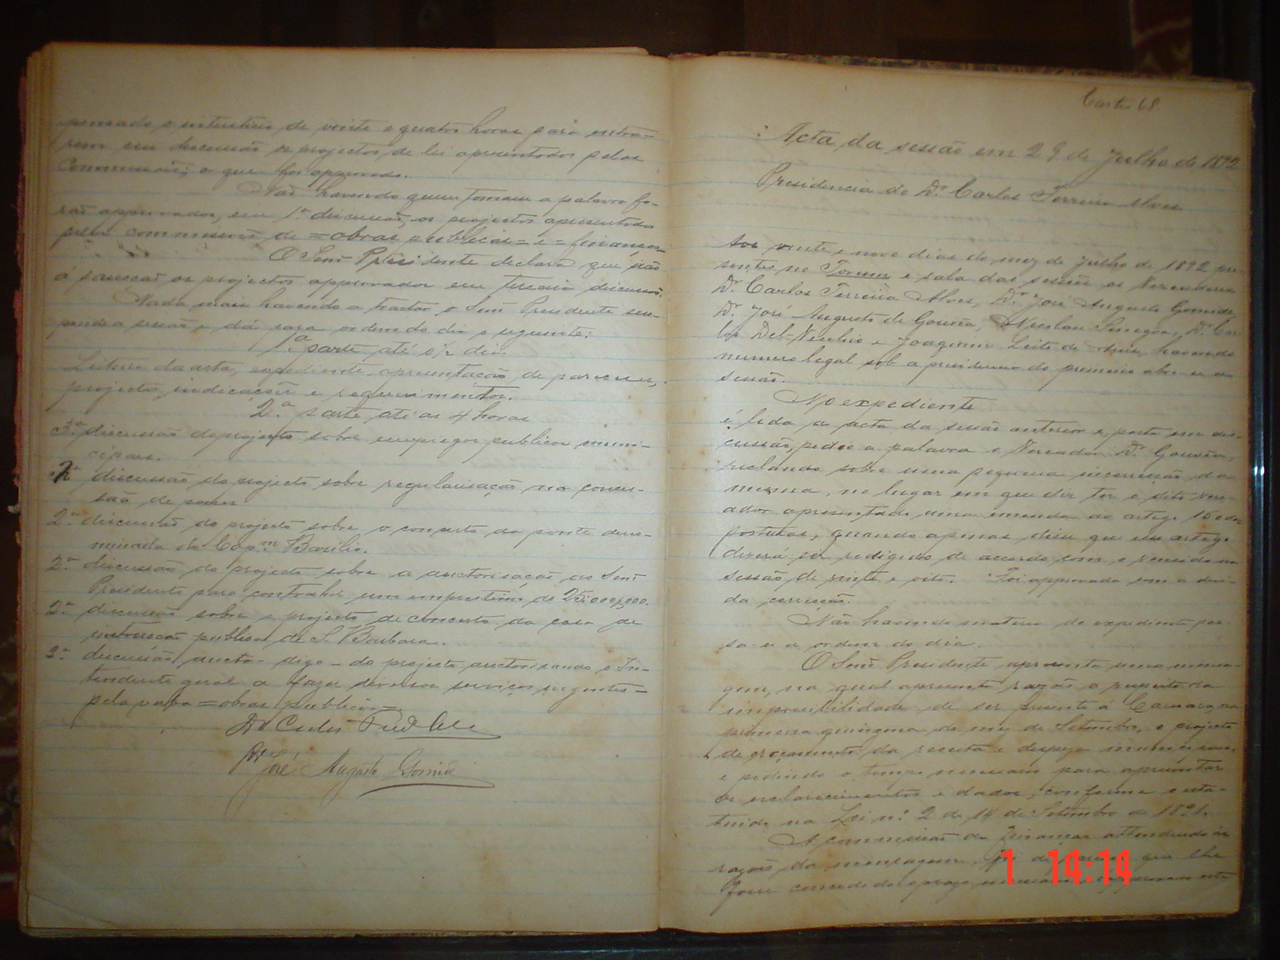 pensado o intersticio de vinte e quatro horas para entra-
rem em discussão os projectos de lei apresentados pelas
Commissões; o que foi approvado.
Não havendo quem tomasse a palavra fo-
rão approvados, em 1ª discussão, os projectos apresentados
pelas commissões de =obras publicas= e =finanças=
O Senr. Presidente declara que vão
á sancção os projectos approvados em terceira discussão.
Nada mais havendo a tractar o Senr. Presidente sus-
pende a sessão e dá para ordem do dia o seguinte:
1ª parte até 1/2 dia
Leitura da acta, expediente, apresentação de pareceres,
projectos, indicações e requerimentos.
2ª parte até as 4 horas
3ª discussão do projecto sobre empregos publicos muni-
cipaes.
discussão do projecto sobre regularisação na conces-
são de
2ª discussão do projecto sobre o concerto da ponte deno-
minada do Capm. Basilio.
2ª discussão do projecto sobre a auctorisação ao Senr.
Presidente para contrahir um emprestimo de 25:000,000.
2ª discussão sobre o projecto de concerto da casa de
instrucção publica de S. Barbara.
discussão aucto- digo- do projecto auctorisando o In-
tendente geral a fazer diversos serviços
pela verba =obras publicas=
Dr Carlos
Dr José Augusto Gomide
68
Acta da sessão em 29 de Julho de 1892
Presidencia do Dr. Carlos Ferreira Alves
Aos vinte e nove dias do mez de Julho de 1892 pre-
sentes no e sala das sessões os Vereadores
Dr. Carlos Ferreira Alves, Dr. José Augusto Gomide,
Dr. José Augusto de Gouvêa, Nicolau Dr. Car-
los Del-Vechio e Joaquim Leite de havendo
numero legal sob a presidencia do primeiro abre-se a
sessão.
No expediente
é lida a acta da sessão anterior e, posta em dis-
cussão, pedio a palavra o Vereador Dr. Gouvêa,
reclamando sobre uma pequena incorrecção da
mesma, no lugar em que diz ter o dito Vere-
ador apresentado uma emenda ao artigo 15 das
posturas, quando apenas disse que esse artigo
deverá ser redigido de accordo com o na
sessão de vinte e oito. Foi approvada com a devi-
da correcção.
Não havendo materia de expediente pas-
sa-se a ordem do dia.
O Senr. Presidente apresenta uma mensa-
gem, na qual apresenta razões a respeito da
impossibilidade de ser presente á Camara, na
primeira quinzena do mez de Setembro, o projecto
de orçamento da receita e despeza municipal,
e pedindo o tempo necessario para apresentar
os esclarecimentos e dados, conforme o esta-
tuido na Lei nº 2 de 14 de Setembro de 1891.
A commissão de finanças attendendo ás
razões da mensagem, foi de que lhe
fosse concedido o prazo
1 14:14